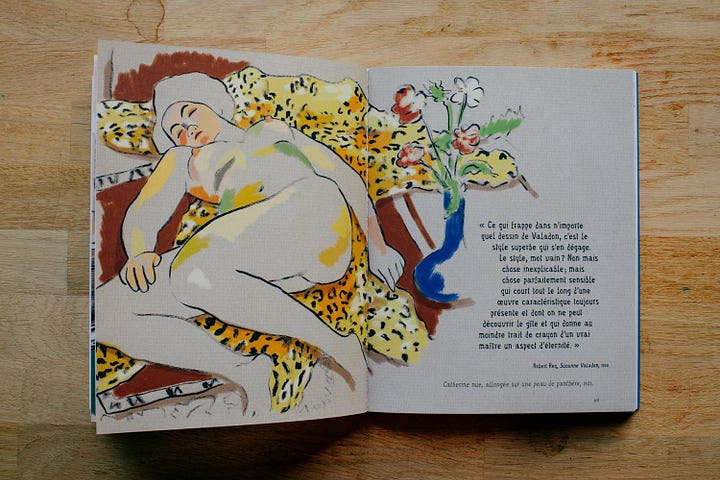 « Ce qui frappe dans n'importe
quel dessin de Valadon, c'est le
style superbe qui s'en dégage.
Le style, mot vain? Non mais
chose inexplicable; mais
chose parfaitement sensible
qui court tout le long d'une
œuvre caractéristique toujours
présente et dont on ne peut
découvrir le gîte et qui donne au
moindre trait de crayon d'un vrai
maître un aspect d'éternité. »
Robert Rey, Suzanne Valadon,
Catherine nue, allongée sur une peau de panthère,